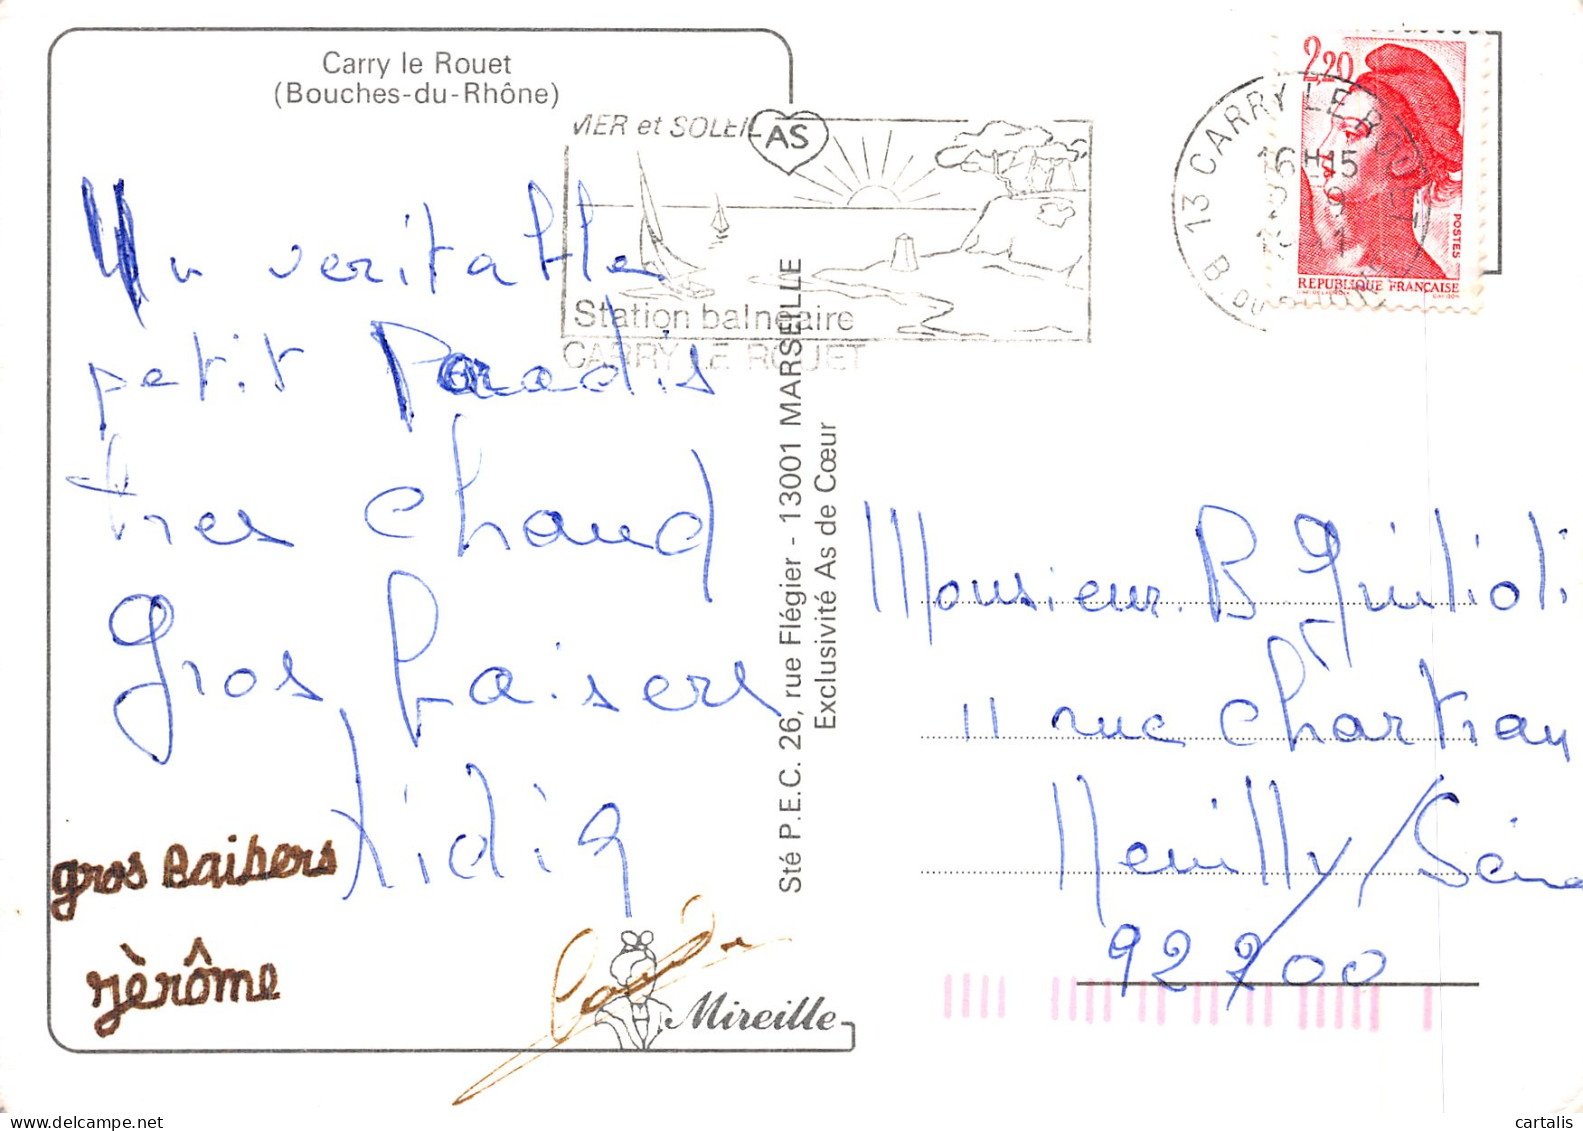 Carry le Rouet
(Bouches-du-Rhône)
MER et SOLEIL
AS
Station balnéaire
CARRY LE ROUET
13 CARRY LE ROUET
16H15
B. DU RHONE
2,20
POSTES
REPUBLIQUE FRANÇAISE
Un veritable
petit Paradis
tres chaud
gros baisers
Lidia
gros Baibers
Jèrôme
Mireille
Sté P.E.C. 26, rue Flégier - 13001 MARSEILLE
Exclusivité As de Cœur
Monsieur. B Guilioli
11 rue Chartran
Neuilly/Seine
92200
cartalis
www.delcampe.net